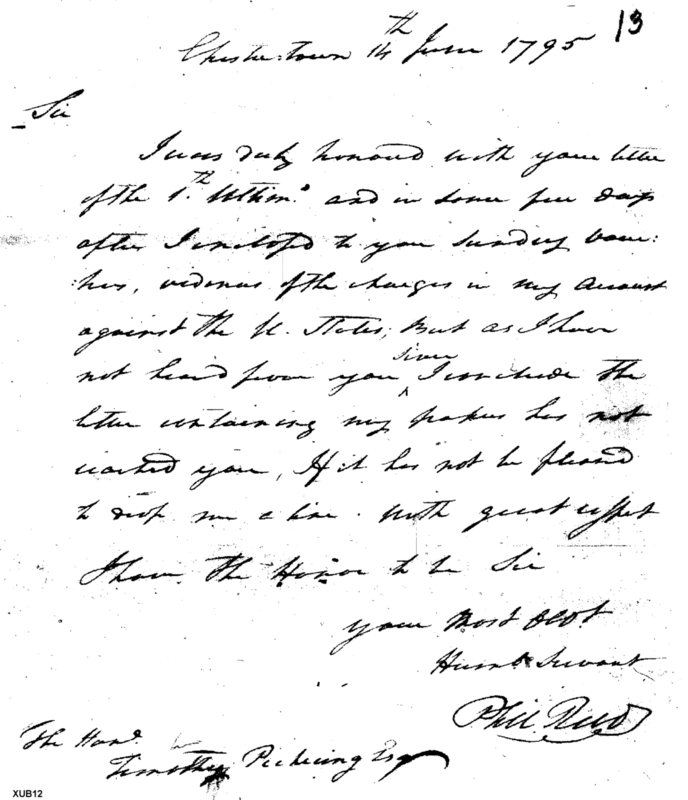 13
Chester town 14th June 1795
Sir
I was duly honoured with your letter
of the 1.th Ultimo and in some few days
after I enclosed to you Sundry vou:
:hers, evidences of the charges in my Account
against the U. States; But as I have
not heard from you since I conclude the
letter containing my papers has not
reached you, If it has not be pleased
to drop me a line. With great respect
I have the Honor to be Sir
your Most Obdt
Humb Servant
Phil Reed
The Hond.
Timothy Pickering Esq
XUB12